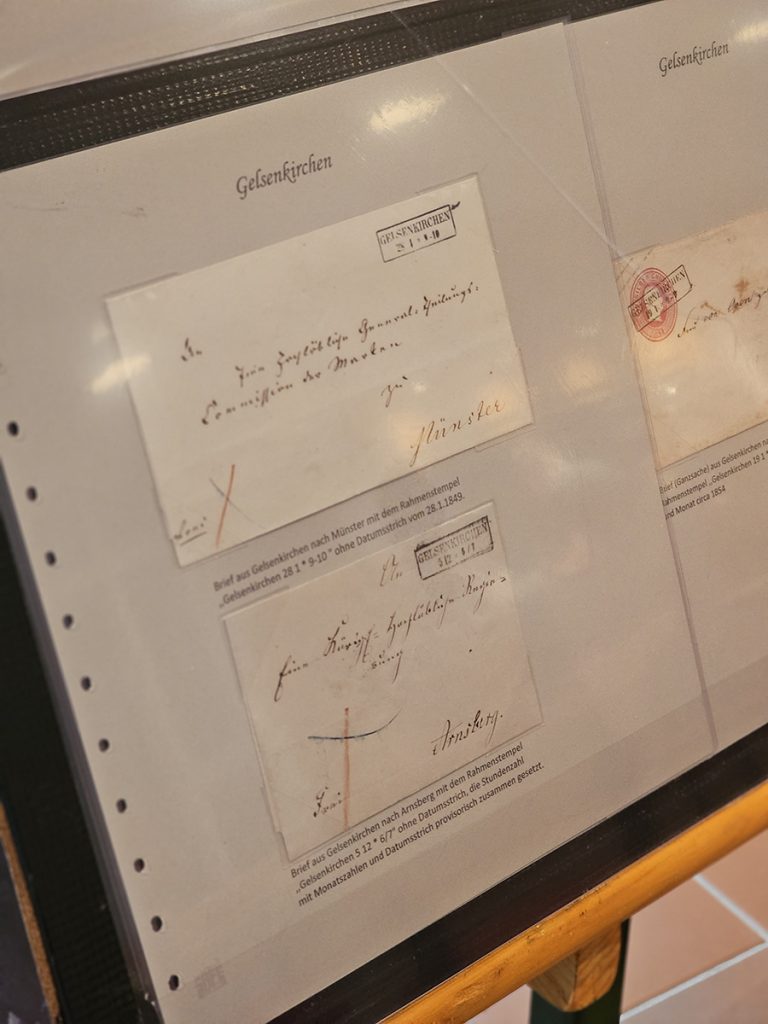 Gelsenkirchen
GELSENKIRCHEN
28 1 * 9-10
An
Eine Hochlöbliche General-Theilungs-
Commission der Marken
zu
Münster
Brief aus Gelsenkirchen nach Münster mit dem Rahmenstempel
„Gelsenkirchen 28 1 * 9-10 " ohne Datumsstrich vom 28.1.1849.
GELSENKIRCHEN
5 12 * 6/7
An
Eine Königl. Hochlöbliche Regie-
rung
Arnsberg.
Frei
Brief aus Gelsenkirchen nach Arnsberg mit dem Rahmenstempel
„Gelsenkirchen 5 12 * 6/7" ohne Datumsstrich, die Stundenzahl
mit Monatszahlen und Datumsstrich provisorisch zusammen gesetzt.
Gelsenkirchen
GELSENKIRCHEN
Brief (Ganzsache) aus Gelsenkirchen
Rahmenstempel „Gelsenkirchen 19 1 *
und Monat circa 1854